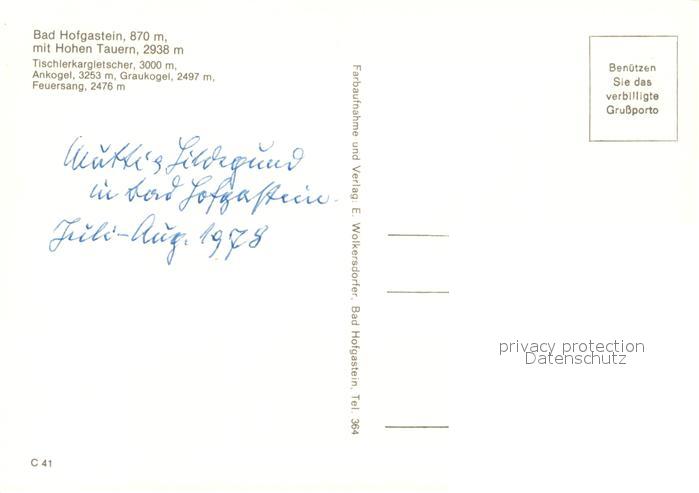 Bad Hofgastein, 870 m,
mit Hohen Tauern, 2938 m
Tischlerkargletscher, 3000 m,
Ankogel, 3253 m, Graukogel, 2497 m,
Feuersang, 2476 m
Mutti & Hildegund
in Bad Hofgastein.
Juli-Aug. 1978
Farbaufnahme und Verlag: E. Wolkersdorfer, Bad Hofgastein, Tel. 364
Benützen
Sie das
verbilligte
Grußporto
privacy protection
Datenschutz
C 41